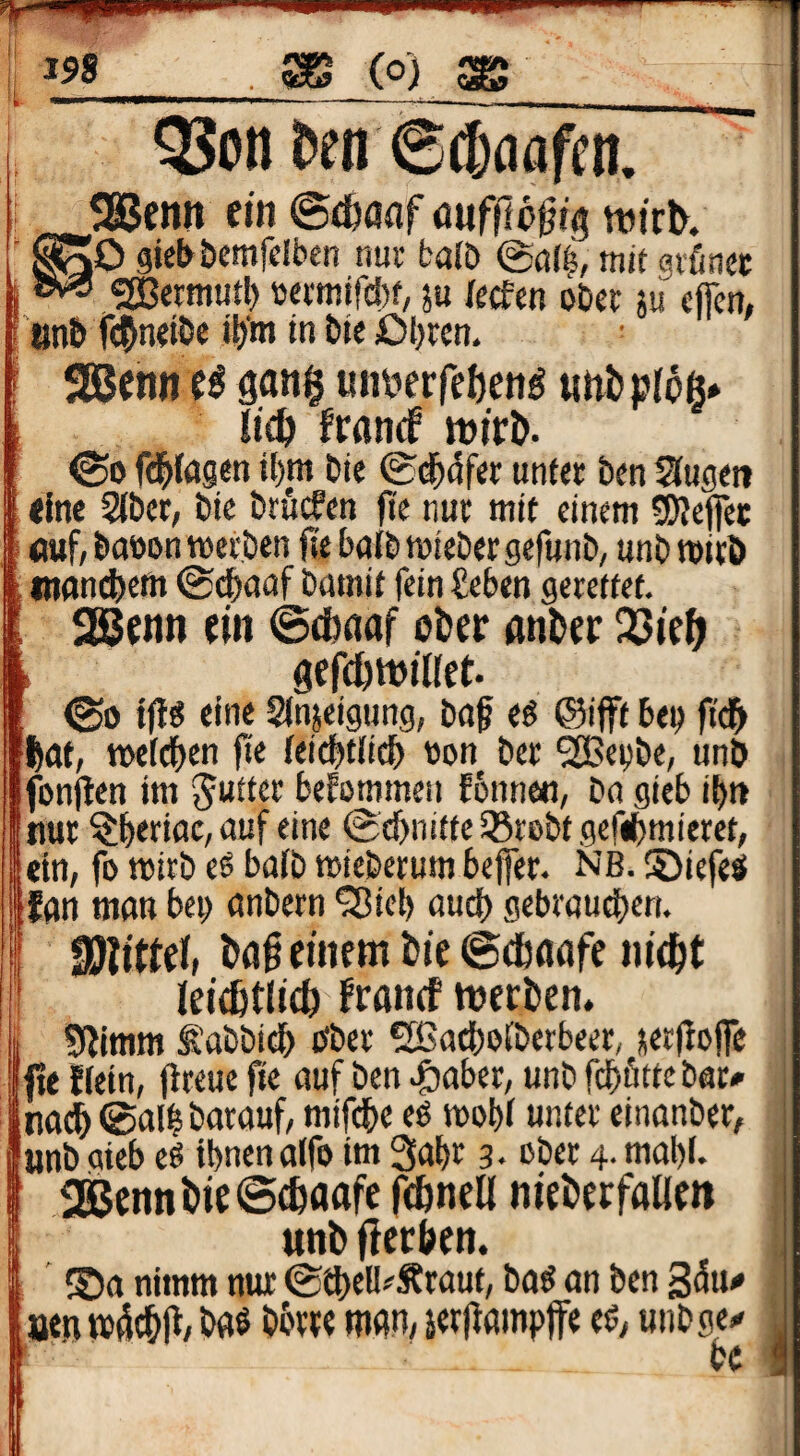 198 (o)
Von den Schaafen.
Wenn ein Schaaf aufflößig wird.
SO gieb demselben nur bald Saltz, mit grüner
Wermuth vermischt, zu lecken oder zu essen,
und schneide ihm in die Ohren.
Wenn es gantz unversehens und plötz-
lich kranck wird.
So schlagen ihm die Schäfer unter den Augen
eine Ader, die drücken sie nur mit einem Messer
auf, davon werden sie bald wieder gesund, und wird
manchem Schaaf damit sein Leben gerettet.
Wenn ein Schaaf oder ander Vieh
geschwillet.
So ists eine Anzeigung, daß es Gifft bey sich
hat, welchen sie leichtlich von der Weyde, und
sonsten im Futter bekommen können, da gieb ihn
nur Theriac, auf eine Schnitte Brodt geschmieret,
ein, so wird es bald wiederum besser. NB. Dieses
kan man bey andern Vieh auch gebrauchen.
Mittel, daß einem die Schaafe nicht
leichtlich kranck werden.
Nimm Kaddich oder Wacholderbeer, zerstosse
sie klein, streue sie auf den Haber, und schütte dar-
nach Saltz darauf, mische es wohl unter einander,
und gieb es ihnen also im Jahr 3. oder 4. mahl.
Wenn die Schaafe schnell niederfallen
und sterben.
Da nimm nur Schell-Kraut, das an den Zäu-
nen wächst, das dörre man, zerstampffe es, und ge-
be